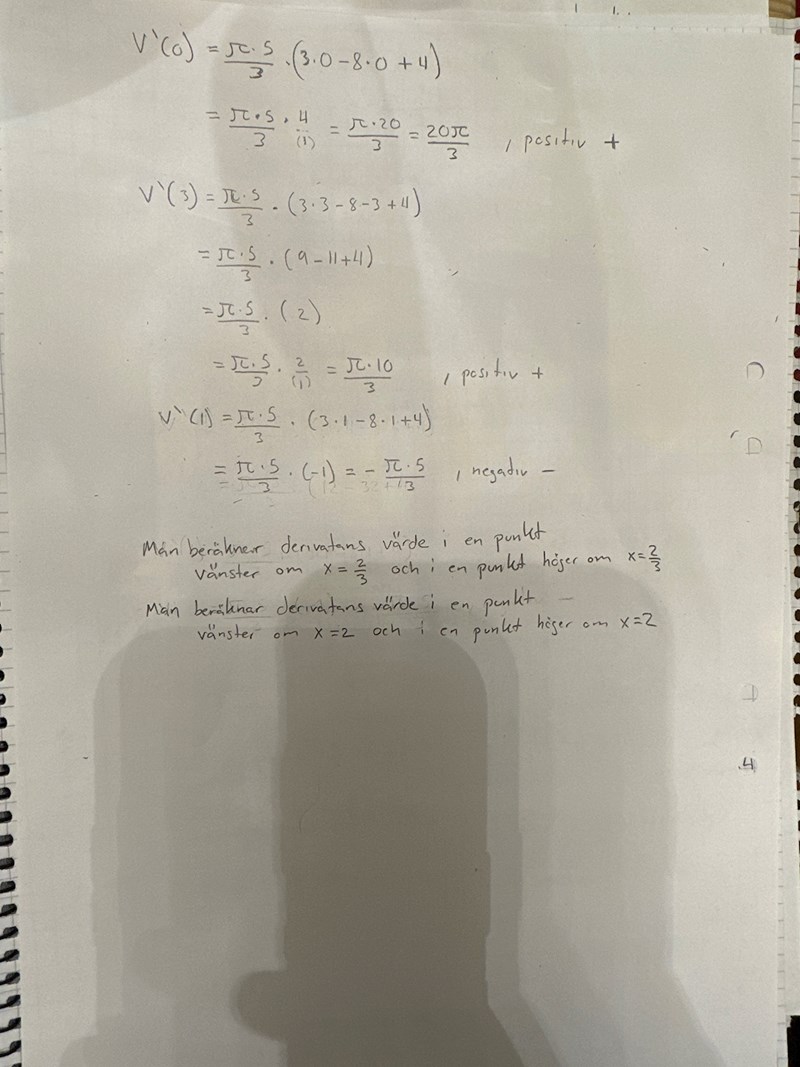 V`(0) = π·5/3 · (3·0 - 8·0 + 4)
= π·5/3 · 4/(1) = π·20/3 = 20π/3 , positiv +
V`(3) = π·5/3 · (3·3 - 8 - 3 + 4)
= π·5/3 · (9 - 11 + 4)
= π·5/3 · (2)
= π·5/3 · 2/(1) = π·10/3 , positiv +
V`(1) = π·5/3 · (3·1 - 8·1 + 4)
= π·5/3 · (-1) = - π·5/3 , negativ -
Man beräknar derivatans värde i en punkt
vänster om x = 2/3 och i en punkt höger om x = 2/3
Man beräknar derivatans värde i en punkt
vänster om x = 2 och i en punkt höger om x = 2